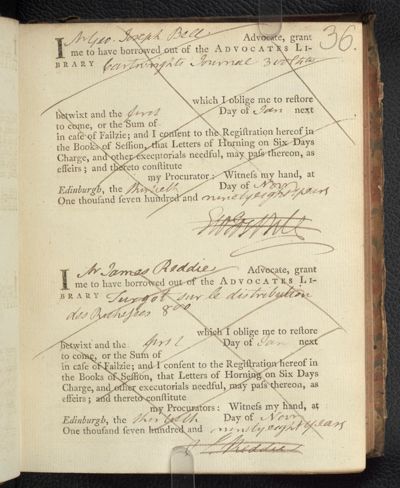 36.
I Mr Geo. Joseph Bell Advocate, grant
me to have borrowed out of the ADVOCATES LI-
BRARY Cartwright's Journal 3 vols
which I oblige me to restore
betwixt and the first Day of Jan next
to come, or the Sum of
in case of Failzie; and I consent to the Registration hereof in
the Books of Session, that Letters of Horning on Six Days
Charge, and other executorials needful, may pass thereon, as
effeirs; and thereto constitute
my Procurator: Witness my hand, at
Edinburgh, the thirtieth Day of Nov
One thousand seven hundred and ninety eight years
I Mr James Reddie Advocate, grant
me to have borrowed out of the ADVOCATES LI-
BRARY Turgot sur le distribution
des Richesses 8vo
which I oblige me to restore
betwixt and the first Day of Jan next
to come, or the Sum of
in case of Failzie; and I consent to the Registration hereof in
the Books of Session, that Letters of Horning on Six Days
Charge, and other executorials needful, may pass thereon, as
effeirs; and thereto constitute
my Procurators: Witness my hand, at
Edinburgh, the thirtieth Day of Nov
One thousand seven hundred and ninety eight years
Reddie